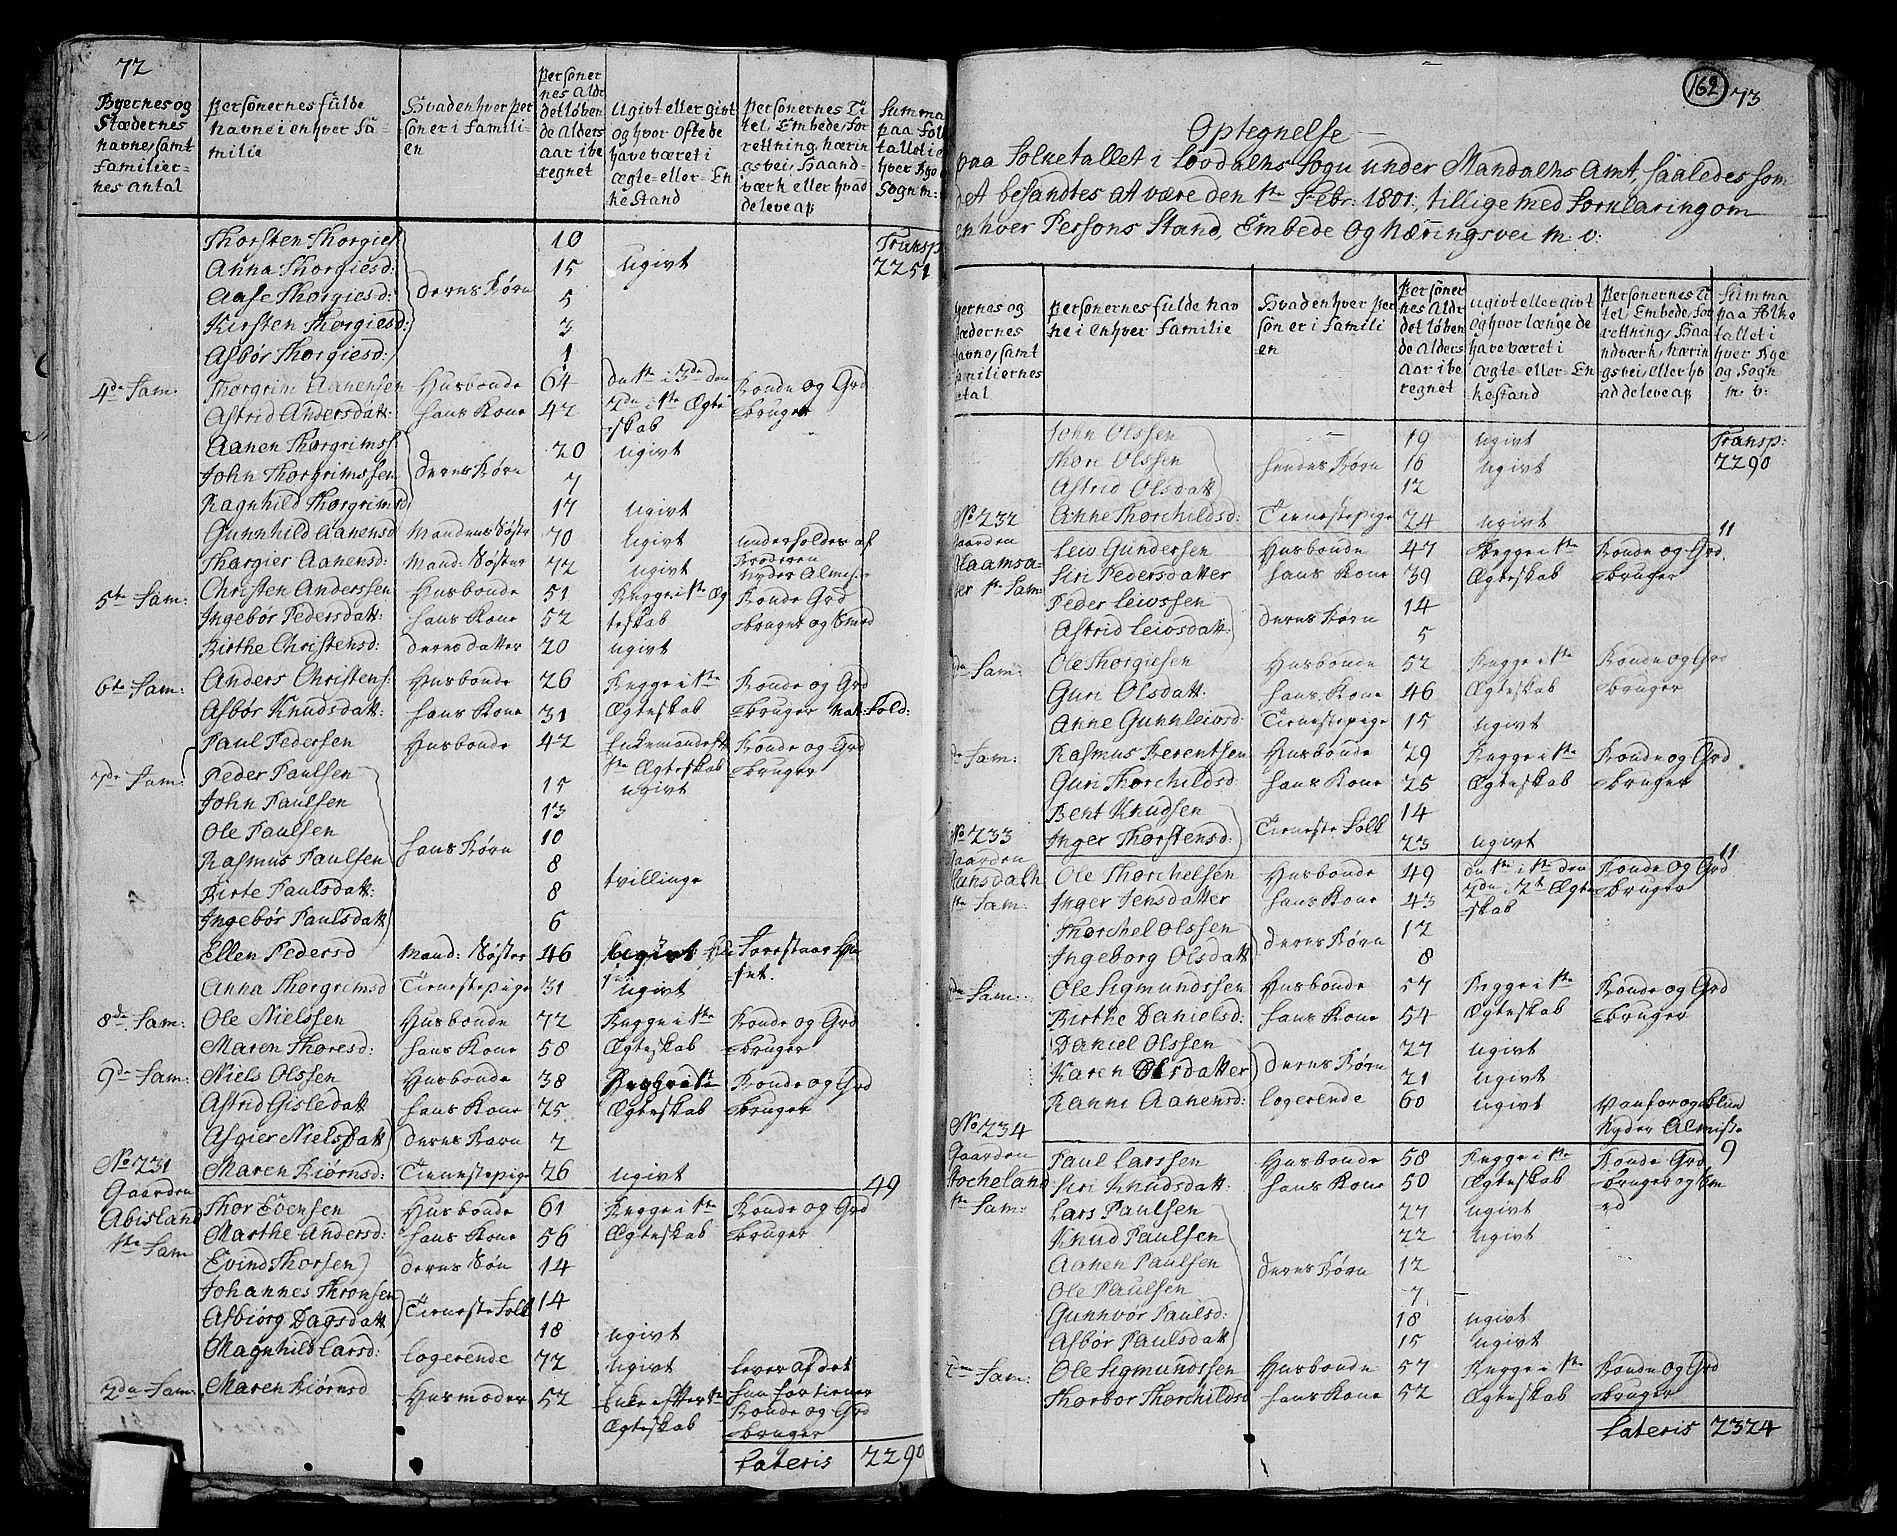 72
Byernes og Stædernes navne, samt familiernes antal | personernes fulde navne i enhver familie | Hvad enhver person er i familien | personernes Aldr det løbende Alders aar iberegnet | Ugivt eller givt og hvor ofte de have været i Ægte- eller Enkestand | personernes Titel, Embede, Forretning, næringsvei, Haandværk eller hvad de leve af | Summa paa Folketallet i enhver Bye og Sogn m:
Thorsten Thorgies: 10 Transp
Anna Thorgiesd: 15 ugivt 2251
Aase Thorgiesd: deres Børn 5
Kirsten Thorgiesd: 3
Asbør Thorgiesd: 1
4de Fam: Thorgrim Aanensen Husbonde 64 den 1te i 3de den Bonde og Grd
Astrid Andersdatt: hans Kone 42 2den i 1te Ægte bruger
skab
Aanen Thorgrims: 20 ugivt
John Thorgrimssen deres Børn 7
Ragnhild Thorgrimsd 17 ugivt
Gunnhild Aanensd Mandens Søster 70 ugivt underholdes af
Broderen
Thargier Aanensd: Mand: Søster 72 ugivt Nyder Almis:
5te Fam: Christen Anderssen Husbonde 51 Begge i 1te Æg Bonde Grd
Ingebør Pedersdatt: hans Kone 52 teskab bruger og Smed
Birthe Christensd: deres datter 20 ugivt
6te Fam: Anders Christens: Husbonde 26 Begge i 1te Bonde og Grd
Asbør Knudsdatt: hans Kone 31 Ægteskab bruger Nat: Sold:
7de Fam: Paul Pedersen Husbonde 42 Enkemand eft Bonde og Grd
1te Ægteskab bruger
Peder Paulsen 15 ugivt
John Paulsen 13
Ole Paulsen 10
Rasmus Paulsen hans Børn 8
Birte Paulsdatt: 8 tvillinge
Ingebør Paulsdatt 6
Ellen Pedersd Mand: Søster 46 ugivt Forestaar Hu
set.
Anna Thorgrimsd Tienestepige 31 ugivt
8de Fam: Ole Nielssen Husbonde 72 Begge i 1te Bonde og Grd
Maren Thoresd: hans Kone 58 Ægteskab bruger
9de Fam: Niels Olssen Husbonde 38 Begge i 1te Bonde og Grd
Astrid Gisledatt hans Kone 25 Ægteskab bruger
Asgier Nielsdatt deres Barn 2
Maren Biørnsd: Tienestepige 26 ugivt 49
No 231 Gaarden Abisland 1te Fam
Thor Evensen Husbonde 61 Begge i 1te Bonde og Grd
Marthe Andersd: hans Kone 56 Ægteskab bruger
Evind Thorsen deres Søn 14
Johannes Thronsen Tieneste Folk 14
Asbiørg Dagsdatt 18 ugivt
Magnhild Larsd: logerende 72 ugivt lever af det
hun fortiener
2den Fam: Maren Biørnsd Husmoder 52 Enke efter 1te Bonde og Grd
Ægteskab bruger
Lateris 2290
162 73
Optegnelse
paa Folketallet i Løvdahls Sogn under Mandahls Amt, saaledes som
det befandtes at være den 1te Febr: 1801, tillige med Forklaring om
enhver Persons Stand, Embede og Næringsvei m: v:
Byernes og Stædernes Navne, samt familiernes antal | personernes fulde navne i enhver familie | Hvad enhver person er i familien | personernes Aldr det løbende Alders aar iberegnet | Ugivt eller givt og hvor længe de have været i Ægte- eller Enkestand | personernes Titel, Embede, Forretning, Haandværk, næringsvei, eller hvad de leve af | Summa paa Folketallet i hver Bye og Sogn m: v:
John Olssen 19 ugivt Transp:
Thore Olssen hendes Børn 16 ugivt 2290
Astrid Olsdatt 12
Anne Thorchildsd: Tienestepige 24 ugivt 11
No 232 Gaarden 1te Fam:
Leiv Gundersen Husbonde 47 Begge i 1te Bonde og Grd
Siri Pedersdatter hans Kone 39 Ægteskab bruger
Peder Leivssen deres Børn 14
Astrid Leivsdatt: 5
2den Fam: Ole Thorgiesen Husbonde 52 Begge i 1te Bonde og Grd
Guri Olsdatt: hans Kone 46 Ægteskab bruger
Anne Gunnleivsd: Tienestepige 15 ugivt
3de Fam: Rasmus Berentsen Husbonde 29 Begge i 1te Bonde og Grd
Guri Thorchildsd: hans Kone 25 Ægteskab bruger
Bent Knudsen Tieneste Folk 14
Inger Thorstensd: 23 ugivt 11
No 233 Gaarden 1te Fam:
Ole Thorchelsen Husbonde 49 den 1te i 1te den Bonde og Grd
Inger Jensdatter hans Kone 43 2den i 2t Ægte bruger
skab
Thorchel Olssen deres Børn 12
Ingeborg Olsdatt 8
2den Fam: Ole Sigmundssen Husbonde 57 Begge i 1te Bonde og Grd
Birthe Danielsd: hans Kone 54 Ægteskab bruger
Daniel Olssen deres Børn 27 ugivt
Karen Olsdatter 21 ugivt
Ranni Aanensd: logerende 60 ugivt Vanfør og blind
Nyder Almisse
9
No 234 Gaarden Hocheland 1te Fam:
Paul Larssen Husbonde 58 Begge i 1te Bonde Grd
Siri Knudsdatt: hans Kone 50 Ægteskab bruger og Sm
ed
Lars Paulsen 27 ugivt
Knud Paulsen 22 ugivt
Aanen Paulsen deres Børn 12
Ole Paulsen 7
Gunnvor Paulsd: 18 ugivt
Asbør Paulsdatt 15 ugivt
2den Fam: Ole Sigmundssen Husbonde 57 Begge i 1te Bonde og Grd
Thorbor Thorchildsd hans Kone 52 Ægteskab bruger
Lateris 2324